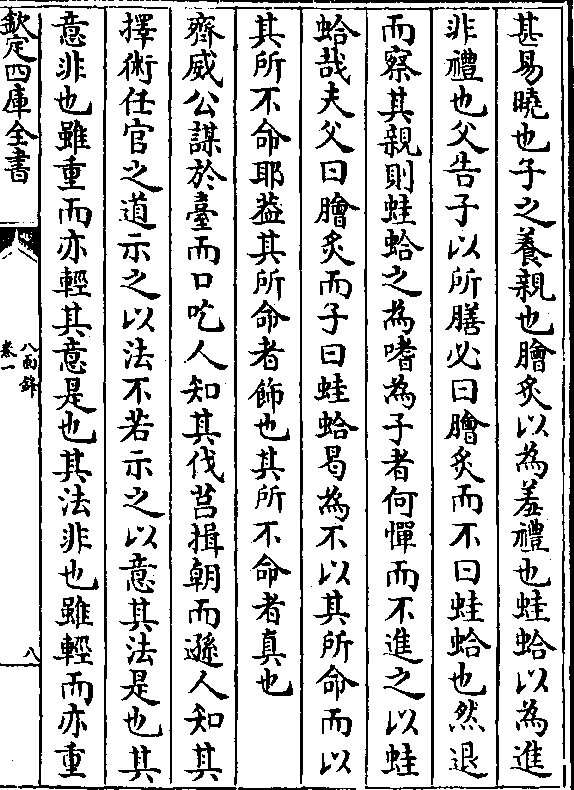 甚易曉也子之養親也膾炙以為羞禮也蛙蛤以為進
非禮也父告子以所膳必曰膾炙而不曰蛙蛤也然退
而察其親則蛙蛤之為嗜為子者何憚而不進之以蛙
蛤哉夫父曰膾炙而子曰蛙蛤曷為不以其所命而以
其所不命耶葢其所命者飾也其所不命者真也
齊威公謀於臺而口吃人知其伐莒揖朝而遜人知其
擇術任官之道示之以法不若示之以意其法是也其
意非也雖重而亦輕其意是也其法非也雖輕而亦重
欽定四庫全書
八面鋒
卷一
八